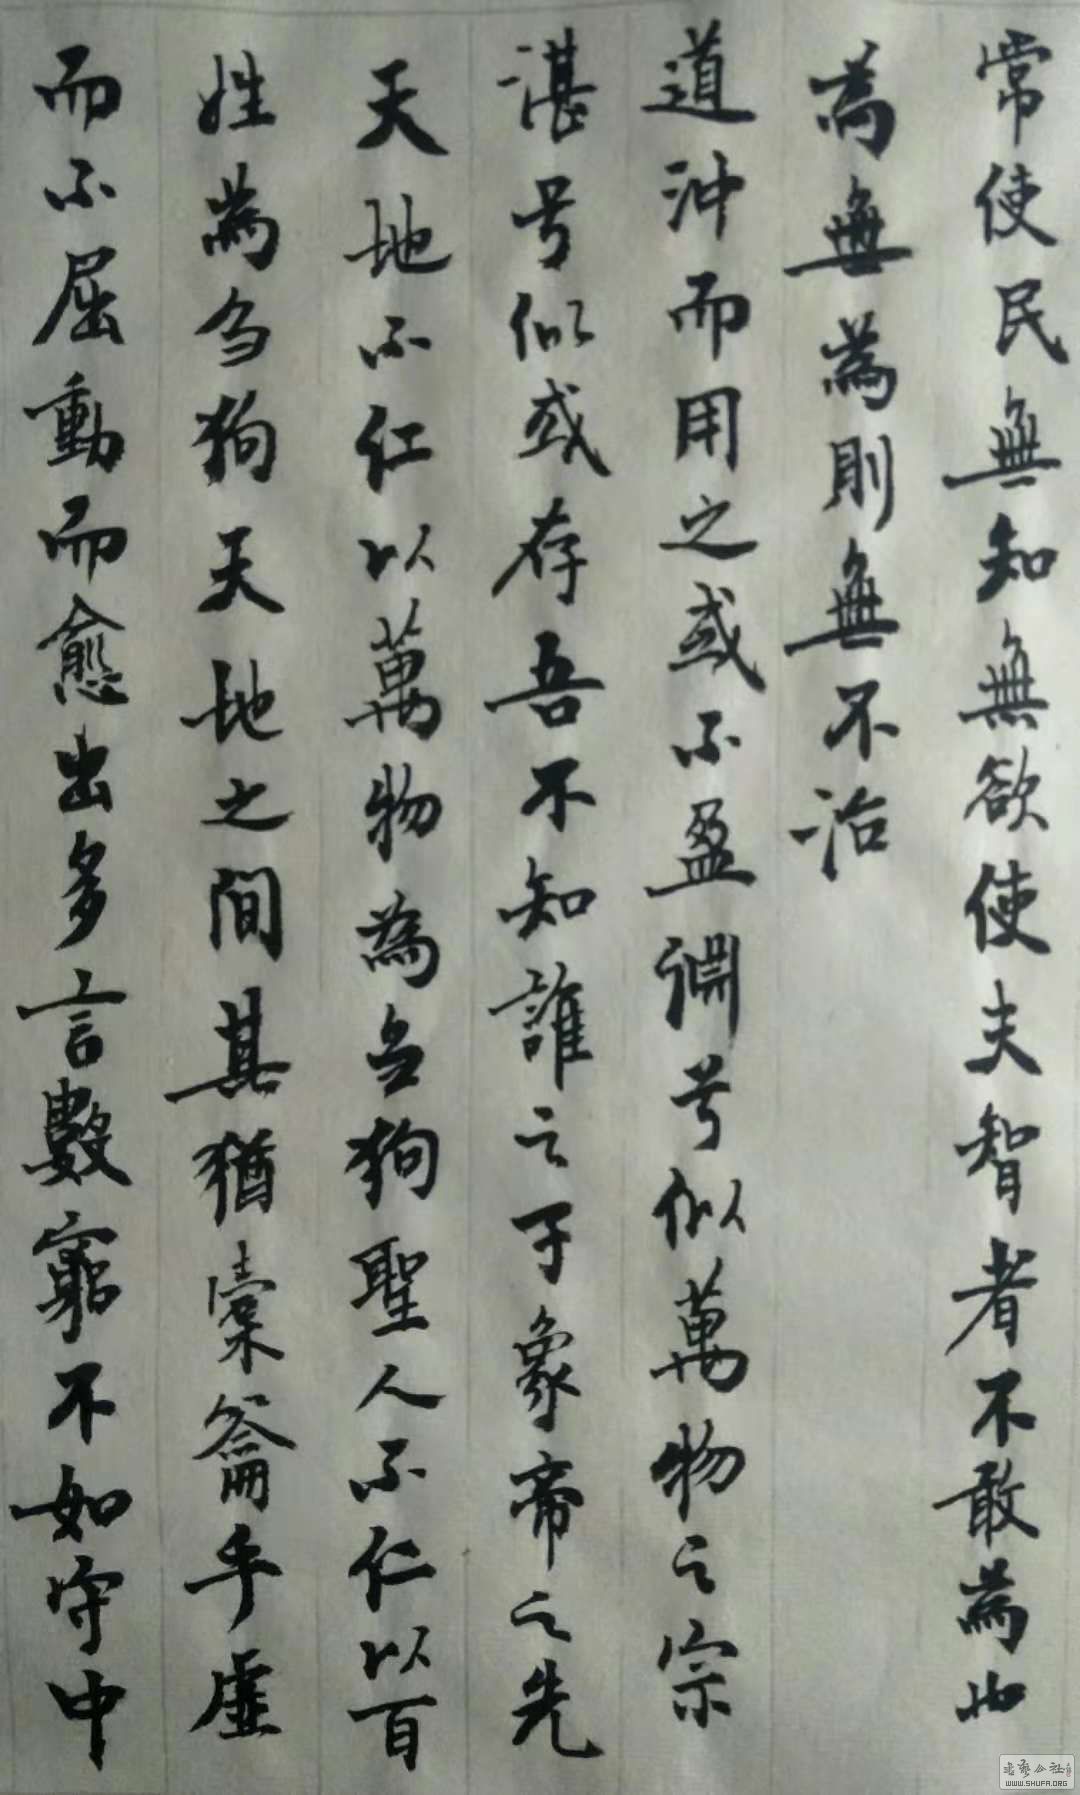 常使民無知無欲使夫智者不敢為也
為無為則無不治
道沖而用之或不盈淵兮似萬物之宗
湛兮似或存吾不知誰之子象帝之先
天地不仁以萬物為芻狗聖人不仁以百
姓為芻狗天地之間其猶橐籥乎虛
而不屈動而愈出多言數窮不如守中
书艺公社
WWW.SHUFA.ORG